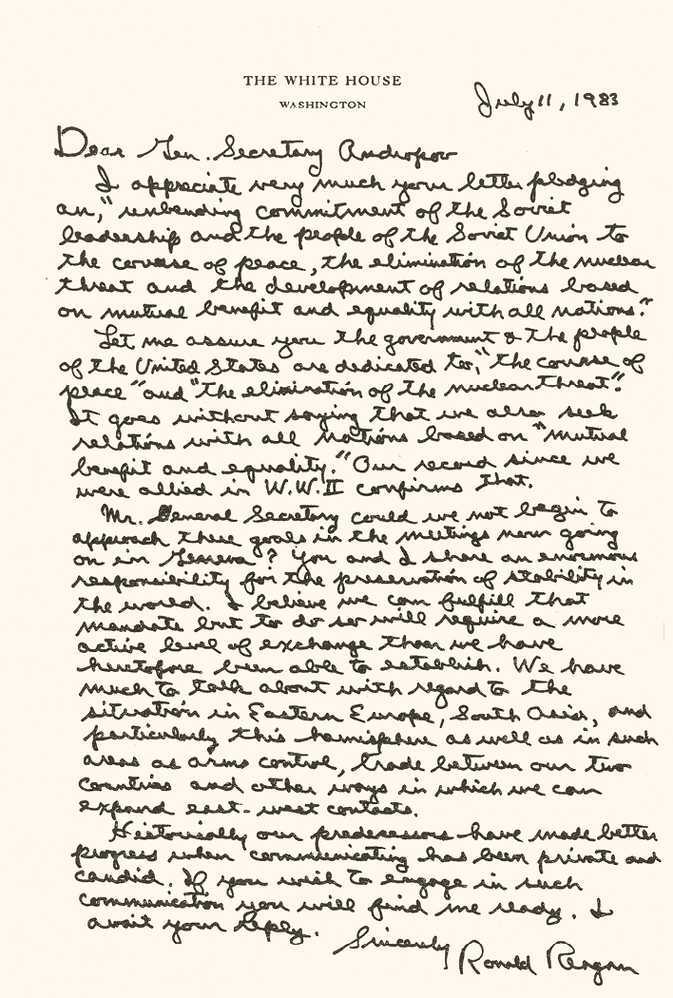 THE WHITE HOUSE
WASHINGTON
July 11, 1983
Dear Gen. Secretary Andropov
I appreciate very much your letter pledging
an, "unbending commitment of the Soviet
leadership and the people of the Soviet Union to
the course of peace, the elimination of the nuclear
threat and the development of relations based
on mutual benefit and equality with all nations."
Let me assure you the government & the people
of the United States are dedicated to, "the course of
peace" and "the elimination of the nuclear threat".
It goes without saying that we also seek
relations with all nations based on "mutual
benefit and equality." Our record since we
were allied in W.W.II confirms that.
Mr. General Secretary could we not begin to
approach these goals in the meetings now going
on in Geneva? You and I share an enormous
responsibility for the preservation of stability in
the world. I believe we can fulfill that
mandate but to do so will require a more
active level of exchange than we have
heretofore been able to establish. We have
much to talk about with regard to the
situation in Eastern Europe, South Asia, and
particularly this hemisphere as well as in such
areas as arms control, trade between our two
countries and other ways in which we can
expand east-west contacts.
Historically our predecessors have made better
progress when communicating has been private and
candid. If you wish to engage in such
communication you will find me ready. I
await your reply.
Sincerely
Ronald Reagan